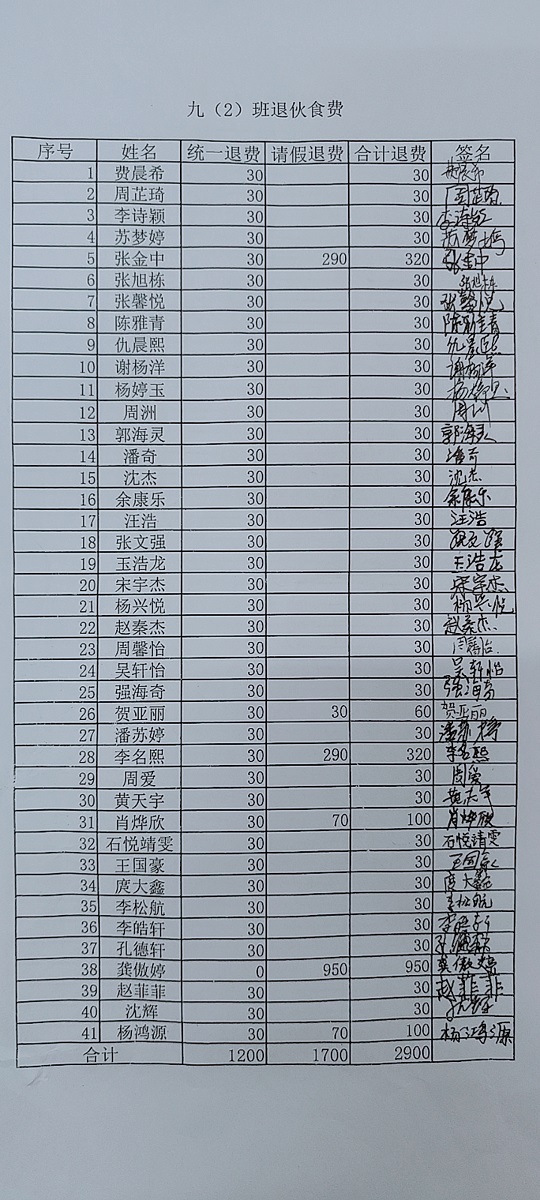 九（2）班退伙食费
序号 姓名 统一退费 请假退费 合计退费 签名
1 费晨希 30 30 费晨希
2 周芷琦 30 30 周芷琦
3 李诗颖 30 30 李诗颖
4 苏梦婷 30 30 苏梦婷
5 张金中 30 290 320 张金中
6 张旭栋 30 30 张旭栋
7 张馨悦 30 30 张馨悦
8 陈雅青 30 30 陈雅青
9 仇晨熙 30 30 仇晨熙
10 谢杨洋 30 30 谢杨洋
11 杨婷玉 30 30 杨婷玉
12 周洲 30 30 周洲
13 郭海灵 30 30 郭海灵
14 潘奇 30 30 潘奇
15 沈杰 30 30 沈杰
16 余康乐 30 30 余康乐
17 汪浩 30 30 汪浩
18 张文强 30 30 张文强
19 玉浩龙 30 30 王浩龙
20 宋宇杰 30 30 宋宇杰
21 杨兴悦 30 30 杨兴悦
22 赵秦杰 30 30 赵秦杰
23 周馨怡 30 30 周馨怡
24 吴轩怡 30 30 吴轩怡
25 强海奇 30 30 强海奇
26 贺亚丽 30 30 60 贺亚丽
27 潘苏婷 30 30 潘苏婷
28 李名熙 30 290 320 李名熙
29 周爱 30 30 周爱
30 黄天宇 30 30 黄天宇
31 肖烨欣 30 70 100 肖烨欣
32 石悦靖雯 30 30 石悦靖雯
33 王国豪 30 30 王国豪
34 庹大鑫 30 30 庹大鑫
35 李松航 30 30 李松航
36 李皓轩 30 30 李皓轩
37 孔德轩 30 30 孔德轩
38 龚傲婷 0 950 950 龚傲婷
39 赵菲菲 30 30 赵菲菲
40 沈辉 30 30 沈辉
41 杨鸿源 30 70 100 杨鸿源
合计 1200 1700 2900